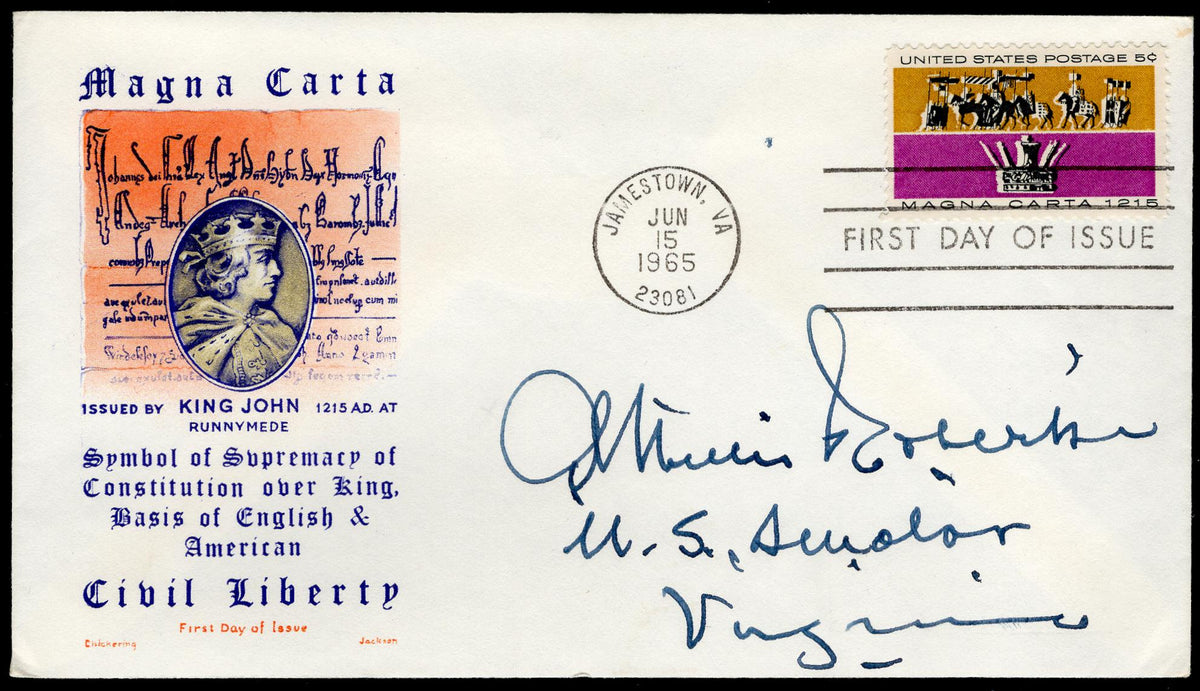 Magna Carta
ISSUED BY KING JOHN 1215 A.D. AT
RUNNYMEDE
Symbol of Svpremacy of
Constitution over King,
Basis of English &
American
Civil Liberty
First Day of Issue
Chickering Jackson
UNITED STATES POSTAGE 5¢
MAGNA CARTA 1215
JAMESTOWN, VA
JUN
15
1965
23081
FIRST DAY OF ISSUE
A Willis Robertson
U.S. Senator
Virginia